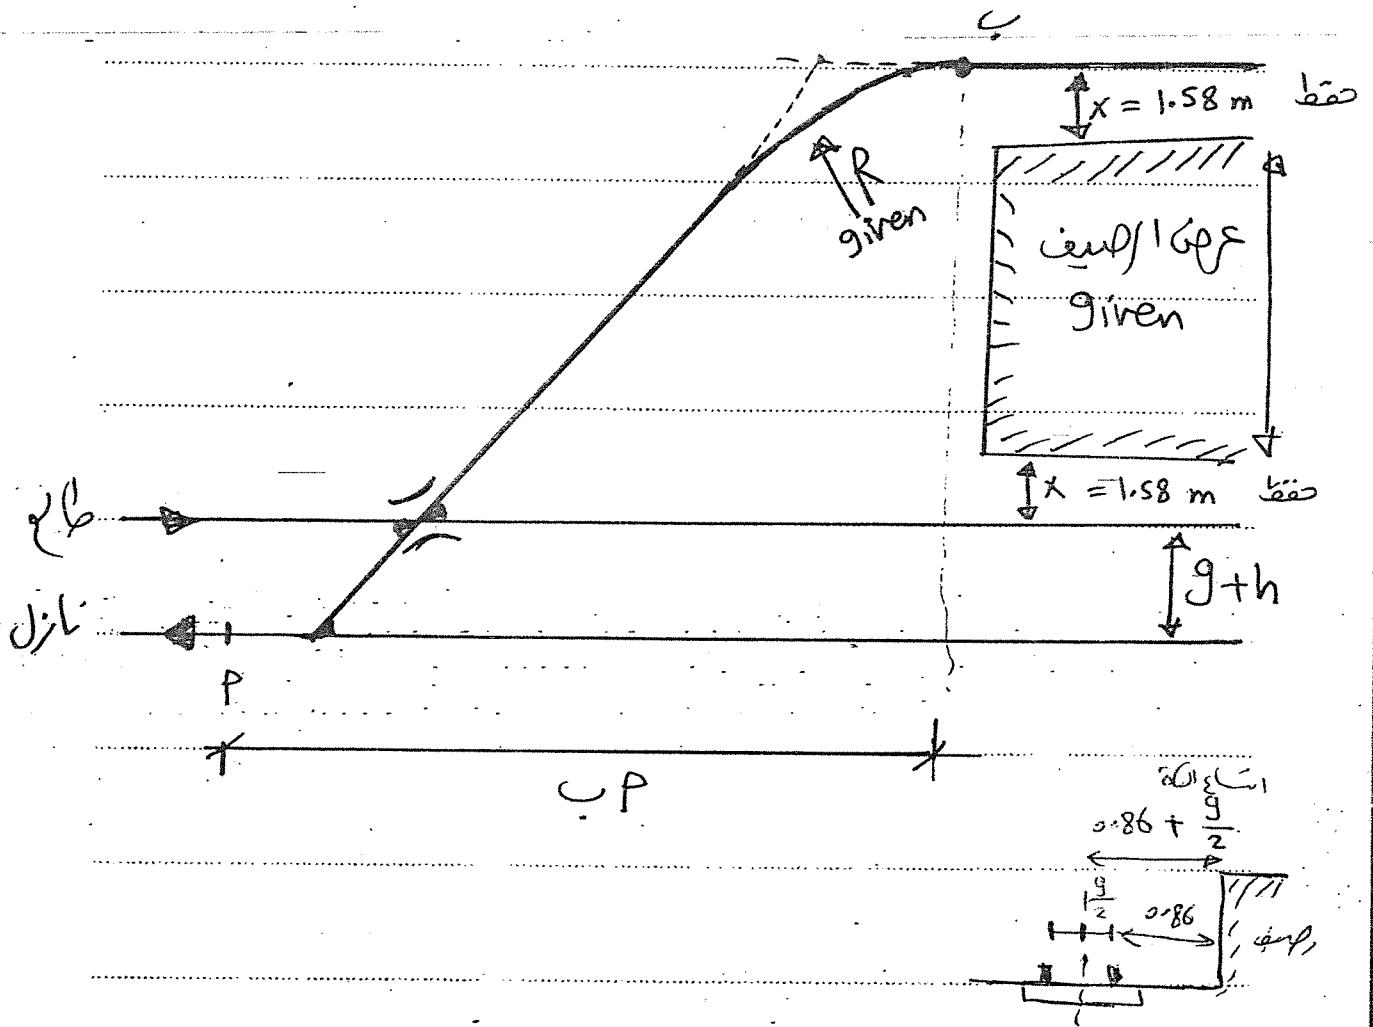 ب
x = 1.58 m فقط
R
given
عرض الرصيف
given
x = 1.58 m فقط
طالع
g+h
نازل
P
P ب
اتساع السكة
0.86 + g/2
g/2
0.86
رصيف